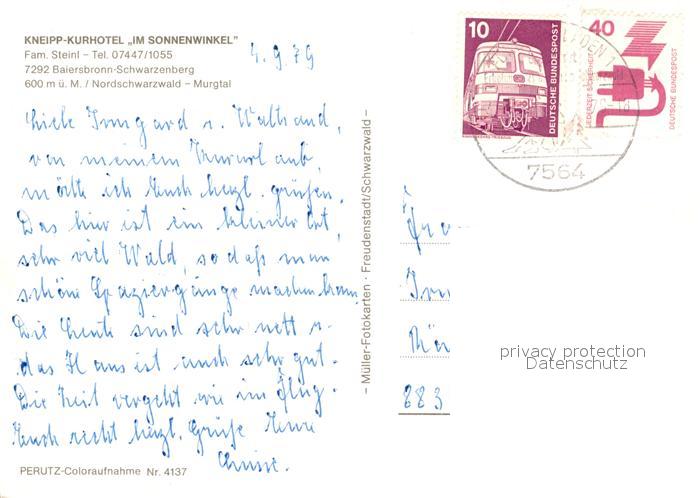 KNEIPP-KURHOTEL „IM SONNENWINKEL"
Fam. Steinl – Tel. 07447/1055
7292 Baiersbronn-Schwarzenberg
600 m ü. M. / Nordschwarzwald – Murgtal
4.9.79
Liebe Irmgard u. Waltraud,
von meinem Kururlaub
möchte ich Euch herzl. grüßen.
Das hier ist ein kleiner Ort,
sehr viel Wald, so daß man
schöne Spaziergänge machen kann.
Die Leute sind sehr nett u.
das Haus ist auch sehr gut.
Die Zeit vergeht wie im Flug.
Euch recht herzl. Grüße Eure
PERUTZ-Coloraufnahme Nr. 4137
– Müller-Fotokarten · Freudenstadt/Schwarzwald –
10
DEUTSCHE BUNDESPOST
40
JEDERZEIT SICHERHEIT
DEUTSCHE BUNDESPOST
7564
883
privacy protection
Datenschutz